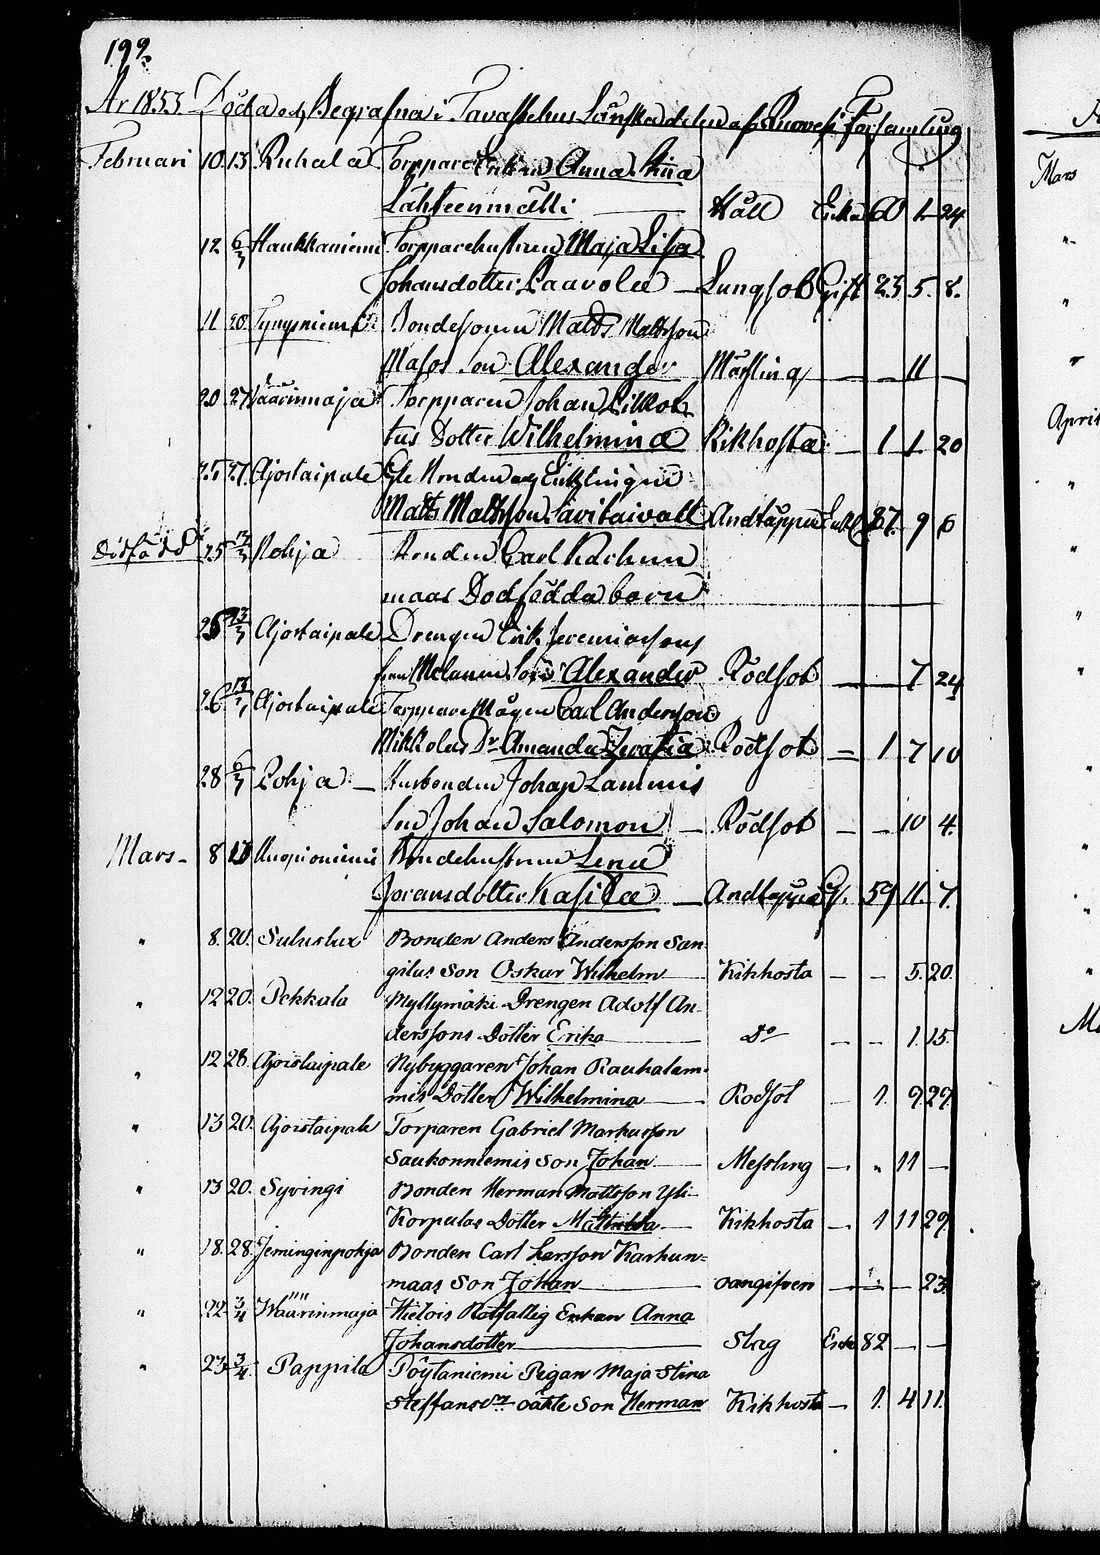 199.
År 1853. Döda och Begrafna i Tavastehus Länska delen af Ruovesi Församling
Februari 10. 13. Ruhala Torppare Enkan Anna Stina
Lähteenmäki Håll Enka 60 1 24
12 6/3 Haukkaniemi Torpparehustrun Maja Lisa
Johansdotter Paavola Lungsot Gift 23 5. 8.
11 20. Bondesonen Matts Mattsson
Son Alexander Mässling — — 11 —
20 27 Väärinmaja Torpparen Johan
tus Dotter Wilhelmina Kikhosta — 1 1 20
25 27. Ajostaipale
Matts Mattsson Savitaival Andtäppa 9 6
Dödfödd 25 Pohja Bonden Carl Karhun
maas Dödfödda barn
Ajostaipale Drengen Erik Jeremiassons
Son Alexander Rödsot — — 7 24
26 Ajostaipale Torppare Mågen Carl Andersson
Mikkolas Dr Amanda Serafia Rödsot — 1 7 10
28 6/3 Pohja — Husbonden Johan Lammis
Son Johan Salomon — Rödsot — — 10 4.
Mars — 8 13 Kuopioniemi Bondehustrun Lena
Göransdotter Kasila — Andtäppa G. 59 11. 7.
" 8. 20. Suluslux Bonden Anders Andersson San-
gilas Son Oskar Wilhelm — Kikhosta — — 5. 20.
" 12 20. Pekkala Myllymäki Drengen Adolf An-
derssons Dotter Erika — Do — — 1. 15.
" 12 28. Ajostaipale Nybyggaren Johan Rauhalam-
mis Dotter Wilhelmina — Rödsot — 1. 9 29.
" 13 20. Ajostaipale Torparen Gabriel Markusson
Saukonniemis Son Johan — Messling — " 11 —
" 13 20. Syvingi Bonden Herman Mattsson Yli-
Korpulas Dotter Mathilda — Kikhosta — 1 11 29.
" 18. 28. Jeminginpohja Bonden Carl Larsson Karhun-
maas Son Johan — oangifven — — — 23.
" 22 3/4 Wäärinmaja Hietois Rotfattig Enkan Anna
Johansdotter — Slag Enka 82 — —
" 23 3/4. Pappila Pöytaniemi Pigan Maja Stina
Steffansdr oäkte Son Herman Kikhosta — 1. 4 11.
Mars
"
"
"
April
"
"
"
"
"
"
"
"
"